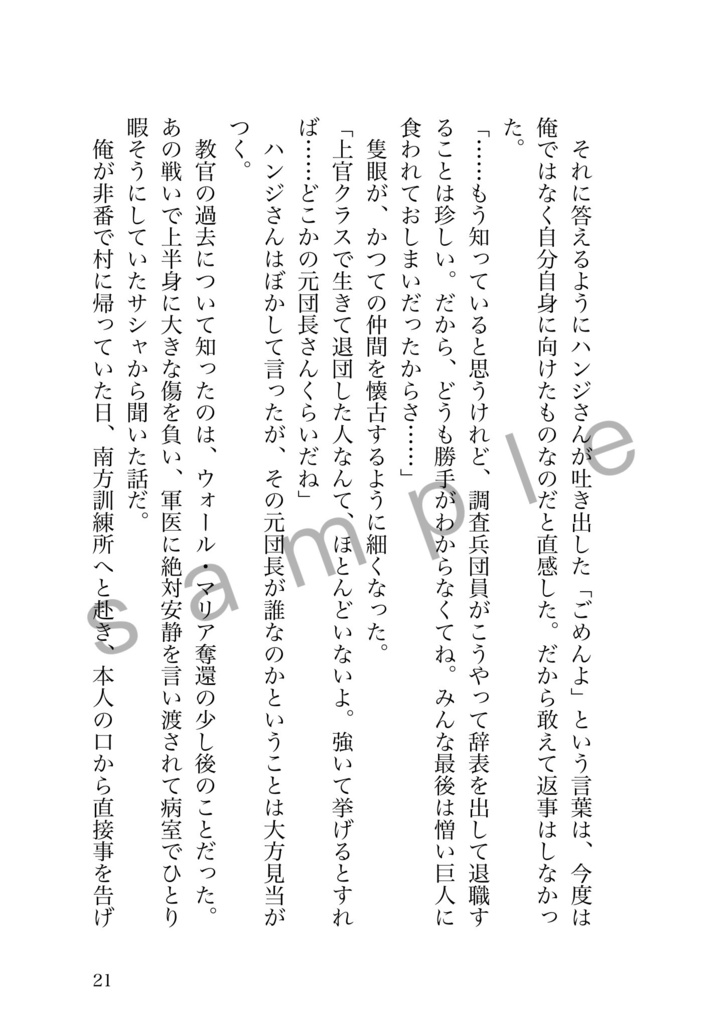 それに答えるようにハンジさんが吐き出した「ごめんよ」という言葉は、今度は
俺ではなく自分自身に向けたものなのだと直感した。だから敢えて返事はしなかっ
た。
「……もう知っていると思うけれど、調査兵団員がこうやって辞表を出して退職す
ることは珍しい。だから、どうも勝手がわからなくてね。みんな最後は憎い巨人に
食われておしまいだったからさ……」
隻眼が、かつての仲間を懐古するように細くなった。
「上官クラスで生きて退団した人なんて、ほとんどいないよ。強いて挙げるとすれ
ば……どこかの元団長さんくらいだね」
ハンジさんはぼかして言ったが、その元団長が誰なのかということは大方見当が
つく。
教官の過去について知ったのは、ウォール・マリア奪還の少し後のことだった。
あの戦いで上半身に大きな傷を負い、軍医に絶対安静を言い渡されて病室でひとり
暇そうにしていたサシャから聞いた話だ。
俺が非番で村に帰っていた日、南方訓練所へと赴き、本人の口から直接事を告げ
sample
21